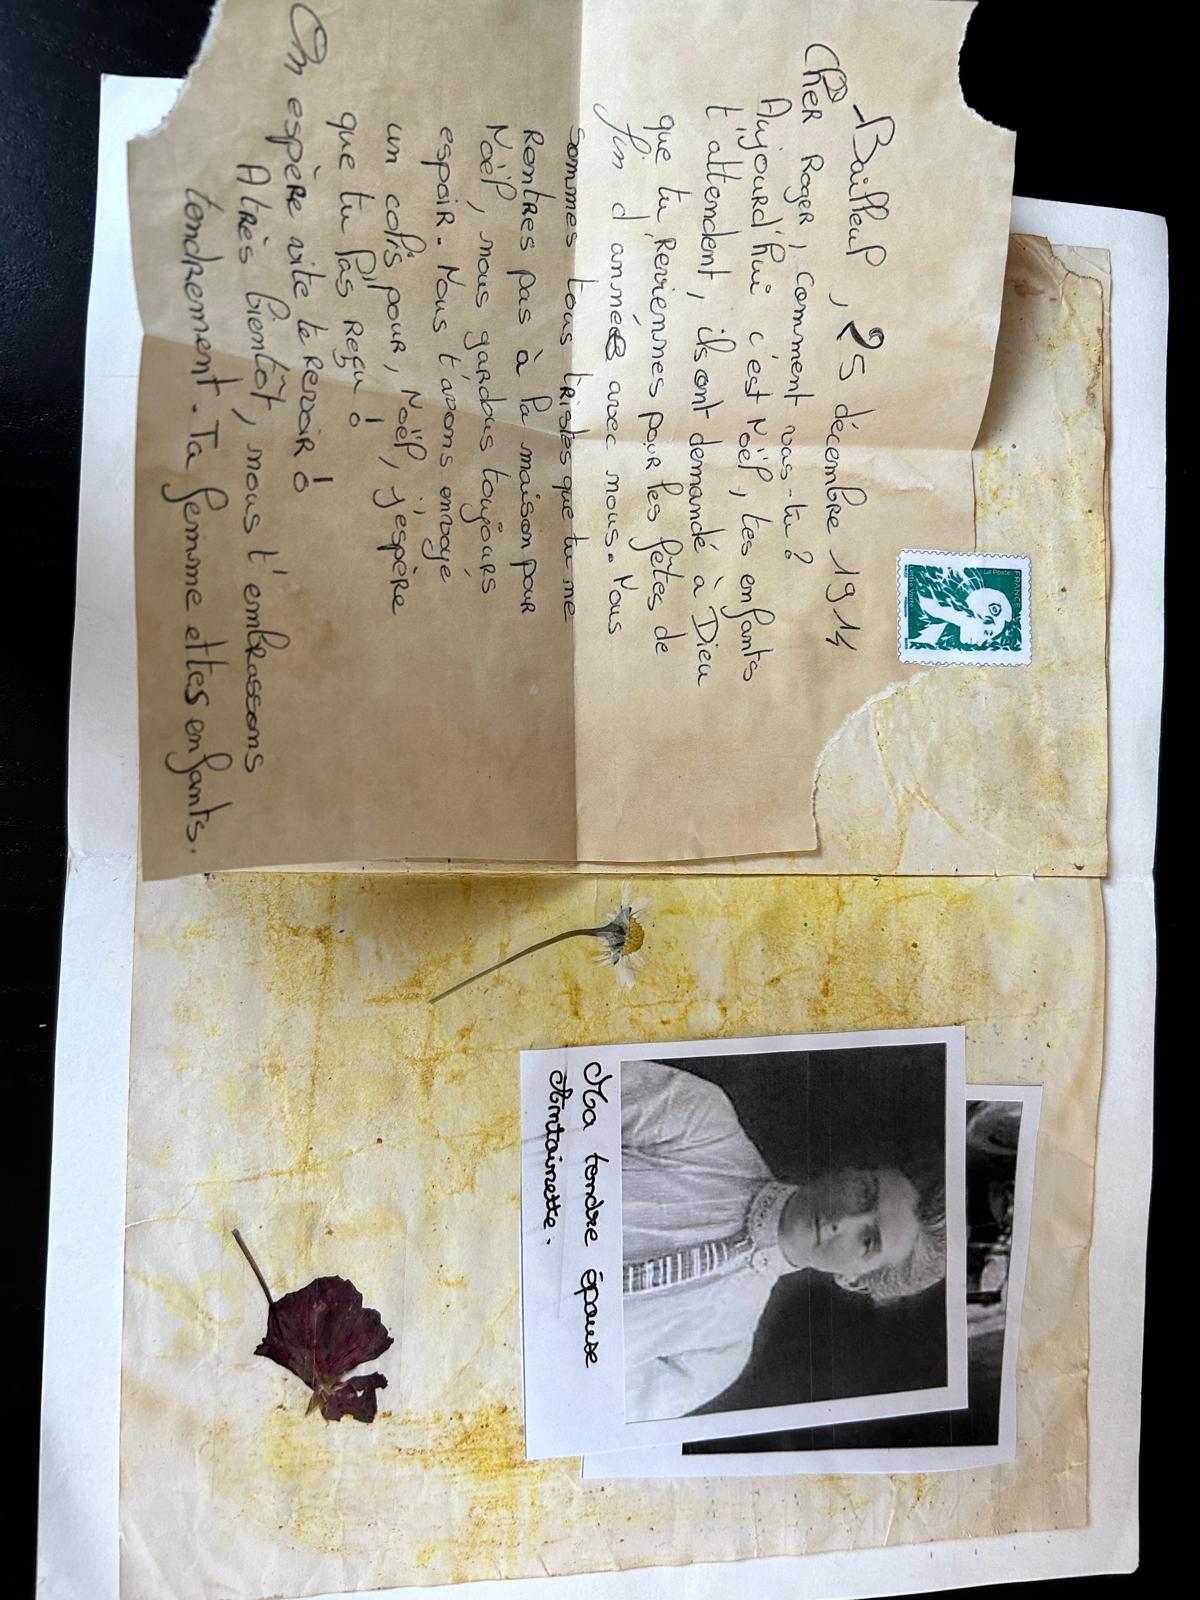 Bailleul, 25 décembre 1914
Cher Roger, comment vas-tu?
Aujourd'hui c'est Noël, tes enfants
t'attendent, ils ont demandé à Dieu
que tu reviennes pour les fêtes de
fin d'année avec nous. Nous
sommes tous tristes que tu ne
rentres pas à la maison pour
Noël, nous gardons toujours
espoir. Nous t'avons envoye
un colis pour, Noël, j'espère
que tu l'as reçu!
On espère vite te revoir!
A très bientôt, nous t'embrassons
tendrement. Ta femme et tes enfants.
FRANCE
La Poste
Lettre Verte
Ma tendre épouse
Antoinette.